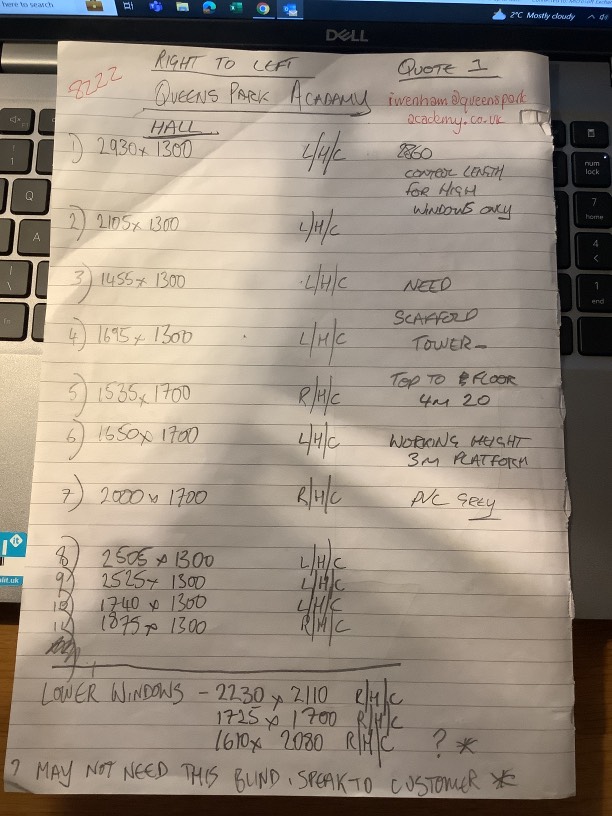 here to search
2°C Mostly cloudy
DELL
RIGHT TO LEFT
QUOTE 1
8222
QUEENS PARK ACADEMY
iwenham@queenspark
academy.co.uk
HALL
1) 2930 x 1300 L/H/C 2860
CONTROL LENGTH
FOR HIGH
WINDOWS ONLY
2) 2105 x 1300 L/H/C
3) 1455 x 1300 L/H/C NEED
SCAFFOLD
4) 1695 x 1300 L/H/C TOWER -
5) 1535 x 1700 R/H/C TOP TO FLOOR
4m 20
6) 1650 x 1700 L/H/C WORKING HEIGHT
3m PLATFORM
7) 2000 x 1700 R/H/C PVC GREY
8) 2505 x 1300 L/H/C
9) 2525 x 1300 L/H/C
10) 1740 x 1300 L/H/C
11) 1875 x 1300 R/H/C
LOWER WINDOWS - 2230 x 2110 R/H/C
1725 x 1700 R/H/C
1610 x 2080 R/H/C ? *
? MAY NOT NEED THIS BLIND. SPEAK TO CUSTOMER *
Q
A
num
lock
7
home
4
<
1
end
it
lit.uk